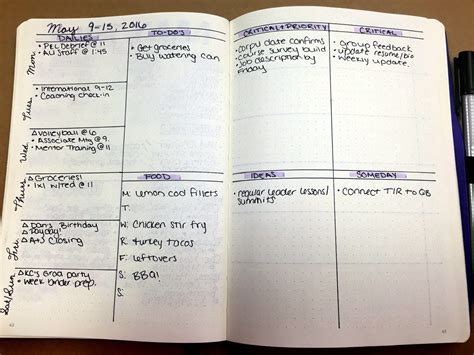 May 9-15, 2016
DAILIES
Mon
• P&L Debrief @ 11
• AU Staff @ 1:45
Tues
• International 9-12
• Coaching check-in
Wed
△ Volleyball @ 6
• Associate Mtg @ 9.
• Mentor Training @ 11
Thurs
△ Groceries!
• 1x1 w/Ted @ 11
Fri
△ Dan's Birthday
△ Payday!
△ A+J Closing
Sat/Sun
△ KC's Grad party
• Week binder prep.
TO-DO'S
• Get groceries
• Buy watering can
FOOD
M: Lemon cod fillets
T:
W: Chicken stir fry
R: turkey tacos
F: leftovers
S: BBQ!
S:
CRITICAL + PRIORITY
• Corpu date confirms
• Course survey build
• Job description by
Friday
CRITICAL
• Group feedback
• update resume/bio
• Weekly update.
IDEAS
• regular leader lessons/
summits
SOMEDAY
• Connect TIR to GB